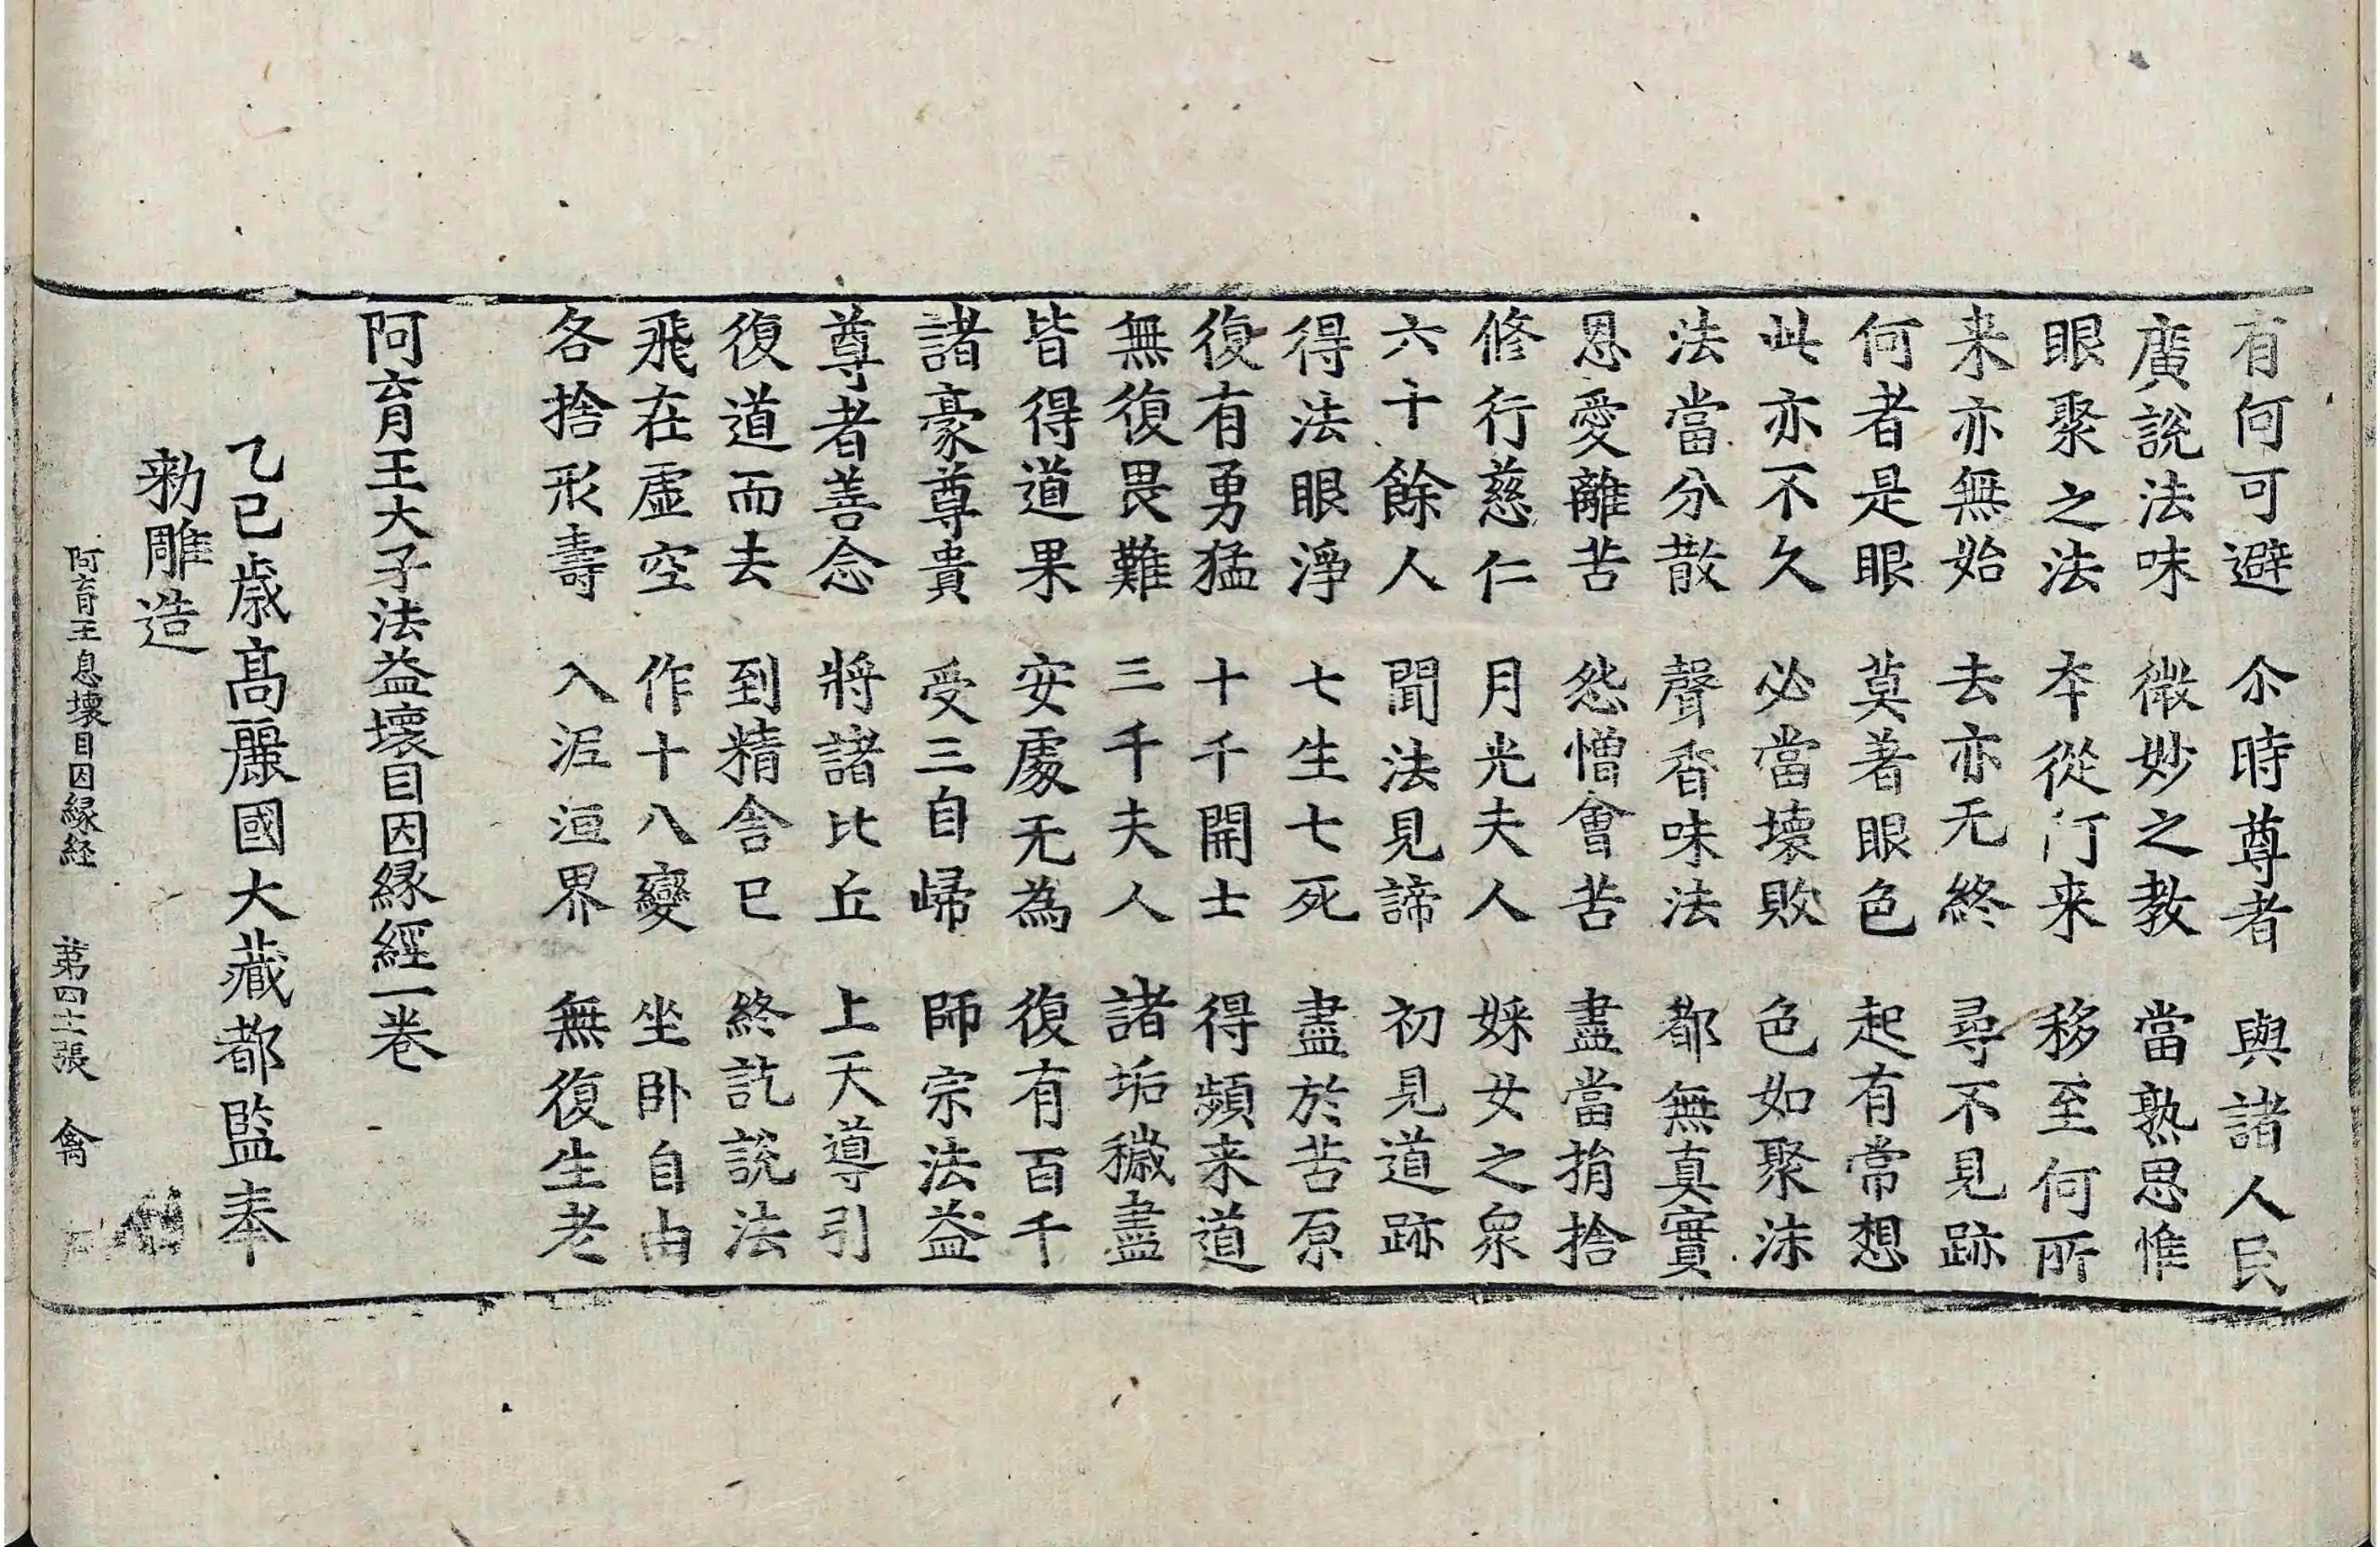 有何可避　尒時尊者　與諸人民
廣說法味　微妙之教　當熟思惟
眼聚之法　本從何来　移至何所
来亦無始　去亦无終　尋不見跡
何者是眼　莫著眼色　起有常想
此亦不久　必當壞敗　色如聚沫
法當分散　聲香味法　都無真實
恩愛離苦　怨憎會苦　盡當捐捨
修行慈仁　月光夫人　婇女之衆
六千餘人　聞法見諦　初見道跡
得法眼淨　七生七死　盡於苦原
復有勇猛　十千開士　得頻来道
無復畏難　三千夫人　諸垢穢盡
皆得道果　安處无為　復有百千
諸豪尊貴　受三自歸　師宗法益
尊者善念　將諸比丘　上天導引
復道而去　到精舍已　終訖說法
飛在虛空　作十八變　坐卧自由
各捨形壽　入泥洹界　無復生老
阿育王太子法益壞目因緣經一卷
乙巳歲高麗國大藏都監奉
勑雕造
阿育王息壞目因緣経　第四十張　禽